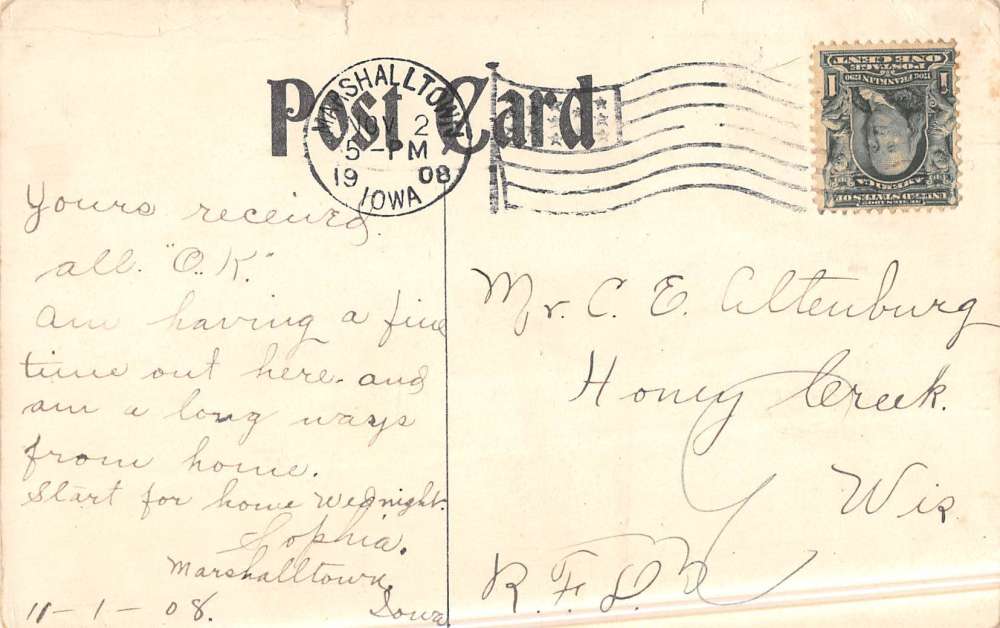 Post Card
MARSHALLTOWN
NOV 2
5 - PM
19 08
IOWA
ONE CENT
POSTAGE
1706 FRANKLIN 1790
1 1
AMERICA
UNITED STATES OF
SERIES 1902
Yours received
all. "O.K."
Am having a fine
time out here. and
am a long ways
from home.
Start for home Wed night.
Sophia.
Marshalltown,
Iowa
11-1-08.
Mr. C. E. Altenburg
Honey Creek.
Wis
R. F. D.